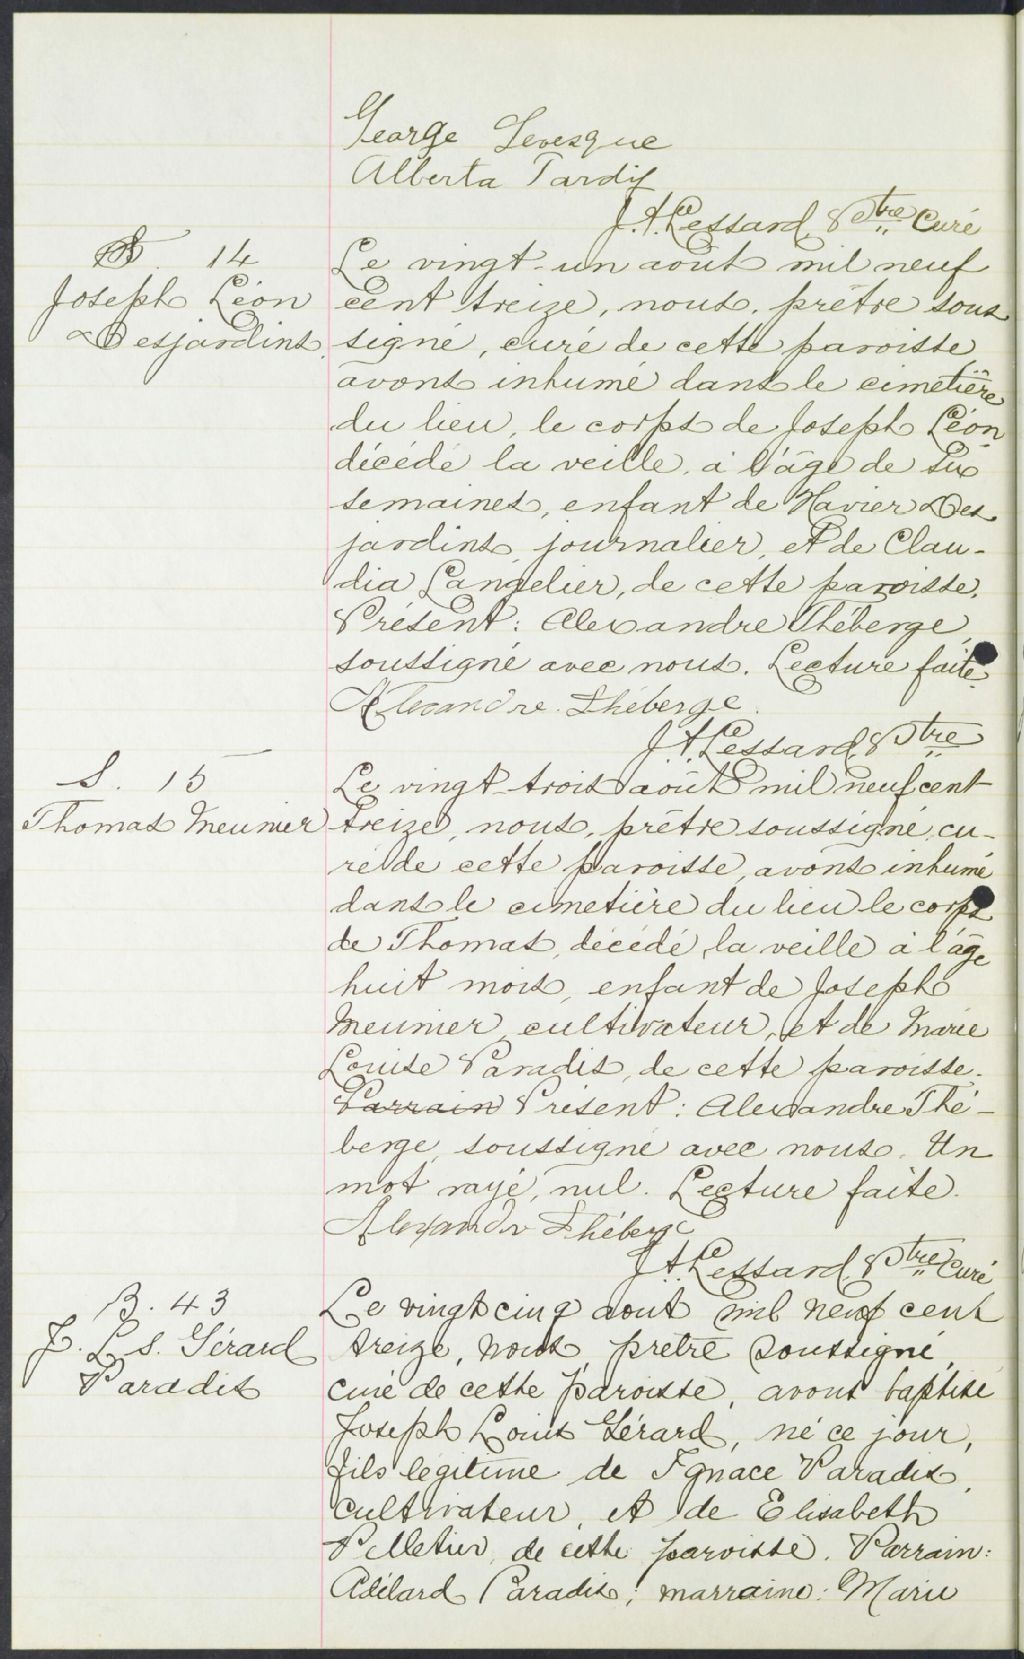 George Levesque
Alberta Tardif
J. A. Lessard, Ptre Curé
S. 14
Joseph Léon
Desjardins.
Le vingt-un août mil neuf
cent treize, nous, prêtre sous
signé, curé de cette paroisse,
avons inhumé dans le cimetière
du lieu, le corps de Joseph Léon
décédé la veille, à l'âge de six
semaines, enfant de Xavier Des
jardins, journalier, et de Clau-
dia Langelier, de cette paroisse.
Présent: Alexandre Théberge,
soussigné avec nous. Lecture faite.
Alexandre Théberge.
J. A. Lessard, Ptre
S. 15
Thomas Meunier
Le vingt-trois août mil neuf cent
treize, nous, prêtre soussigné, cu-
ré de cette paroisse, avons inhumé
dans le cimetière du lieu le corps
de Thomas, décédé la veille à l'âge
huit mois, enfant de Joseph
Meunier, cultivateur, et de Marie
Louise Paradis, de cette paroisse.
Parrain Présent: Alexandre Thé-
berge, soussigné avec nous. Un
mot rayé, nul. Lecture faite.
Alexandre Théberge
J. A. Lessard, Ptre Curé
B. 43
J. Ls. Gérard
Paradis
Le vingt cinq aout mil neuf cent
treize, nous, prêtre soussigné,
curé de cette paroisse, avons baptisé
Joseph Louis Gérard, né ce jour,
fils légitime de Ignace Paradis,
cultivateur, et de Elisabeth
Pelletier, de cette paroisse. Parrain:
Adélard Paradis; marraine: Marie